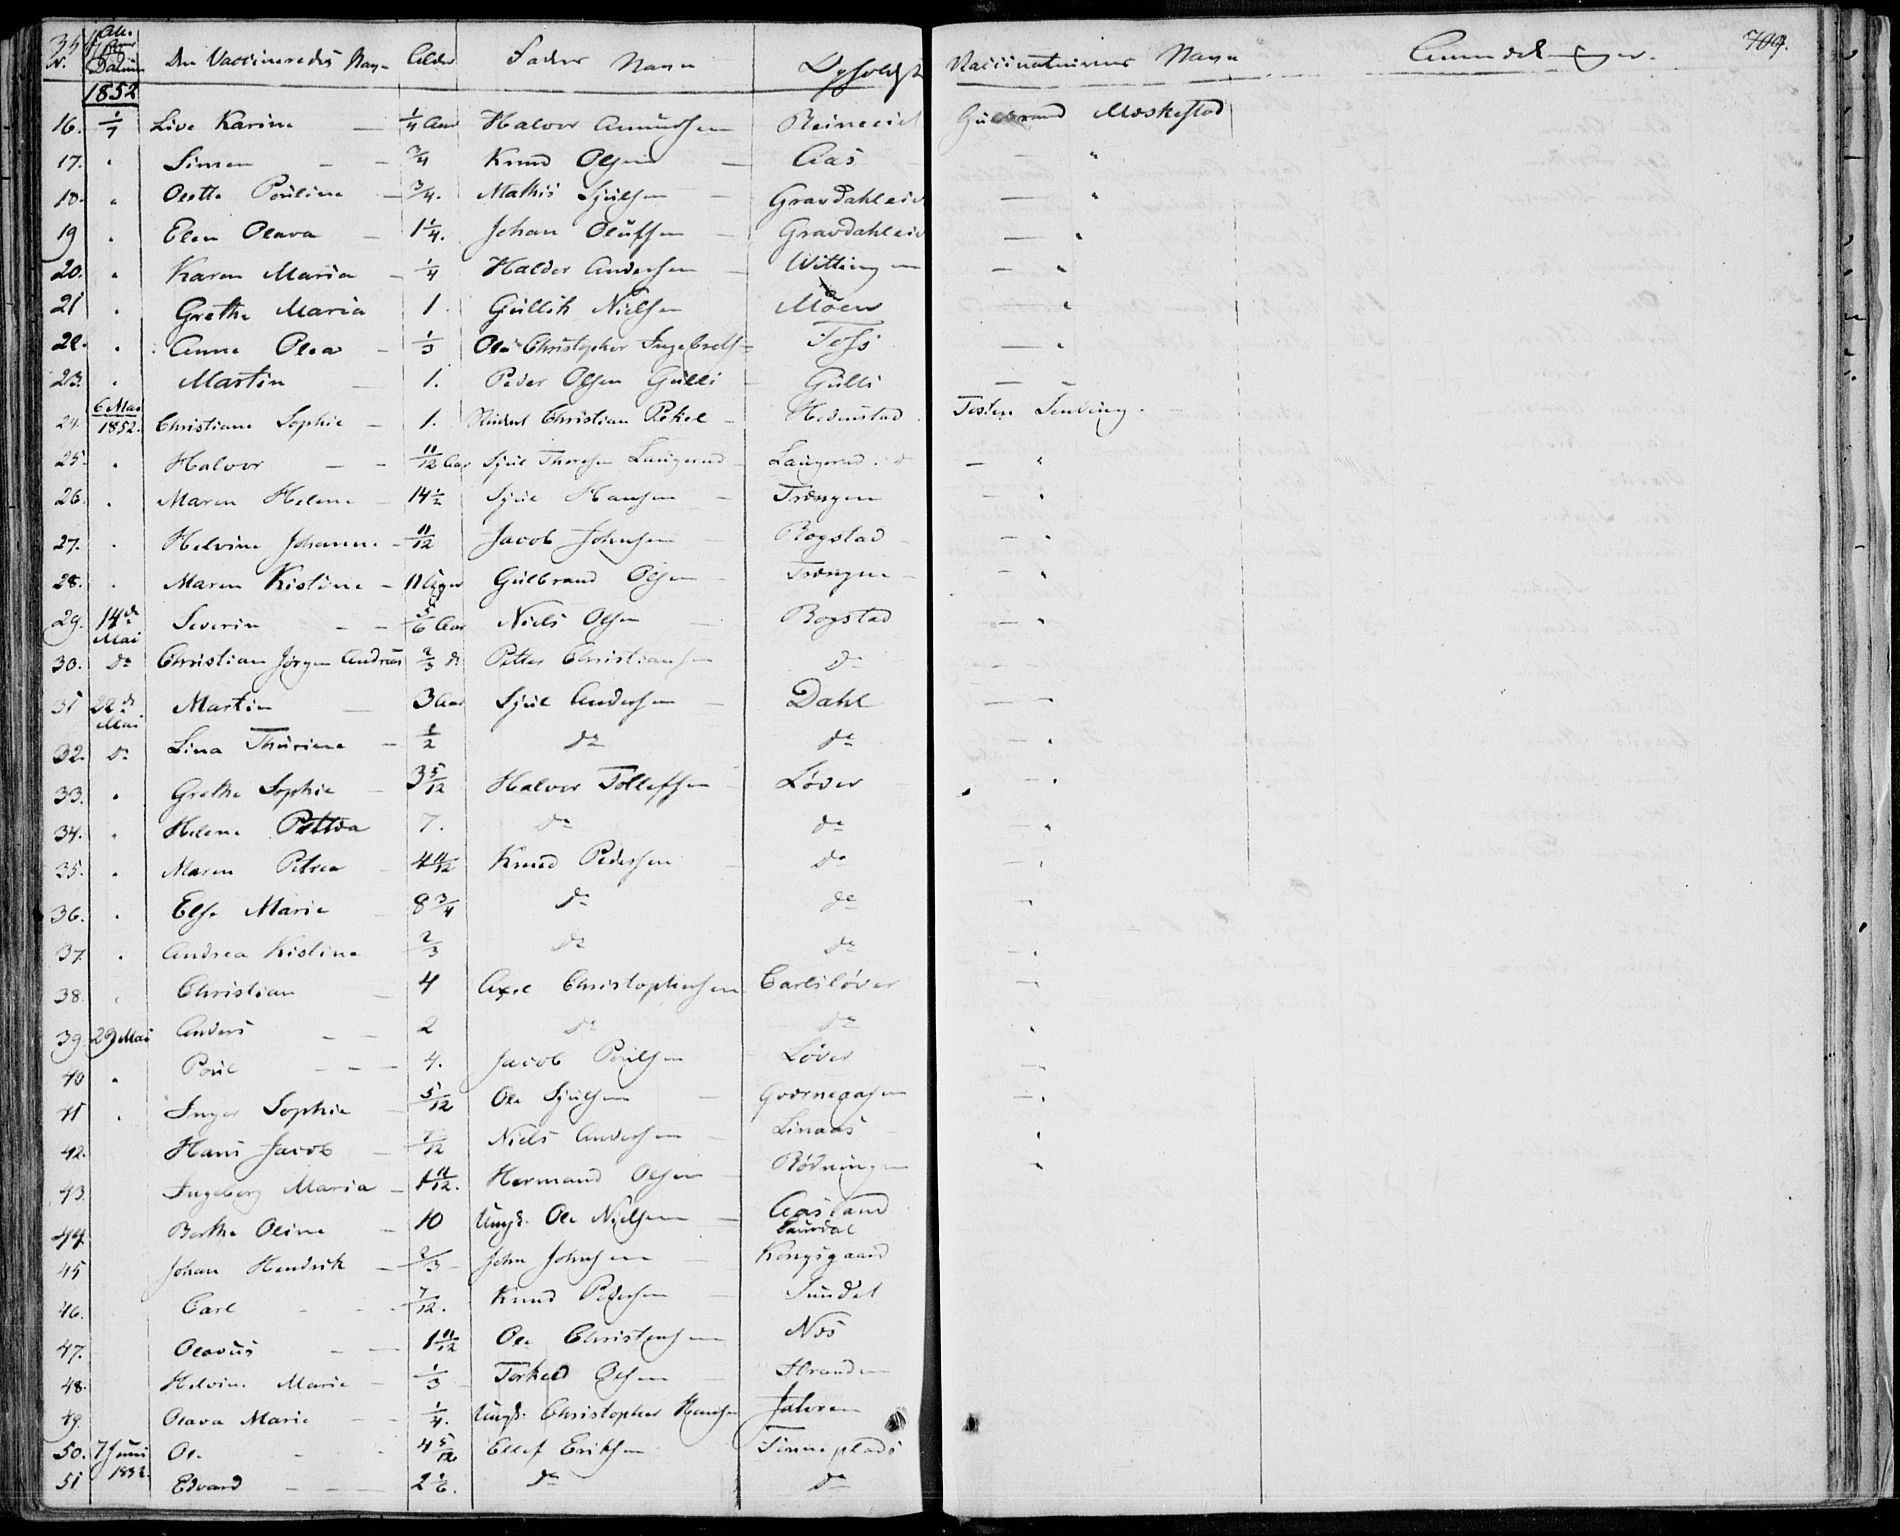 Datum Den Vaccineredes Navn Alder Faders Navn Opholdst Vaccinateurens Navn Anmerkninger. 709.
1852
16. 1/7 Live Karine — 1/4 Aar Halvor Amundsen Gulbrand Moskestad
17. " Simen — — 3/4 Knud Olsen — Aas — "
18. " Olette Pouline — 3/4. Mathis Sjulsen — Gravdahleid — "
19 " Elen Olava — 1 1/4. Johan Olufsen — Gravdahleid — "
20. " Karen Maria — 1/4 Halvor Andersen — Wittingen — "
21 " Grethe Maria 1. Gullik Nielsen Moen "
22. " Anne Olea — 1/3 Ole Christopher Ingebrets= Foss — "
23. " Martin — 1. Peder Olsen Gulli — Gulli — "
24. 6 Mai 1852. Christiane Sophie — 1. Christian Hedenstad
25. " Halvor — — 11/12 Aar Sjul Langerud — Langerud — "
26. " Maren Helene — 14 1/2 Sjul Hansen — Trængen — "
27. " Helvine Johanne — 11/12 Jacob Johnsen — Bogstad — "
28. " Maren Kistine — 11 Uger Gulbrand Olsen — Trængen — "
29. 14de Mai Severin — — 5/6 Aar Niels Olsen — Bogstad — "
30. do Christian Jørgen Andreas 2/3 do Petter Christiansen do — —
31 22de Mai Martin — 3 Aar Sjul Andersen — Dahl — —
32. do Lina Thurine — 1/2 do do — "
33. " Grethe Sophie — 3 5/12 Halvor Tollefsen — Løver "
34. " Helene 7. do do — "
35. " Maren Petrea — 4 11/12 Knud Pedersen — do — "
36. " Else Marie — 8 3/4 do do — "
37. " Andrea Kistine 2/3 do do — "
38. " Christian — 4 Axel Christophersen Carlsløver — "
39. 29 Mai Anders — — 2 do do "
40 " Poul — — — 4. Jacob Poulsen Løver — "
41 " Inger Sophie — 5/12 Ole Sjulsen — — "
42. Hans Jacob — 7/12 Niels Andersen — Linaas — "
43. Ingeborg Maria — 1 11/12. Hermand Olsen — Rødningen "
44. Berthe Oline — 10 Ungk. Ole Nielsen — Aasland Laurdal
45 Johan Hendrik — 2/3 John Johnsen — Kongsgaard
46. Carl — — 7/12. Knud Pedersen — Sundet
47. Olavus — — 1 11/12 Ole Christensen Næs
48. Helvine Marie — 1/3 Torkel Olsen — Stranden
49. Olava Marie — — 1/4. Ungk. Christopher Hansen Jahren
50. 7 Juni 1852. Ole — 4 5/12 Ellef Eriksen Tinneplads
51 Edvard — — — 2 1/6. do do